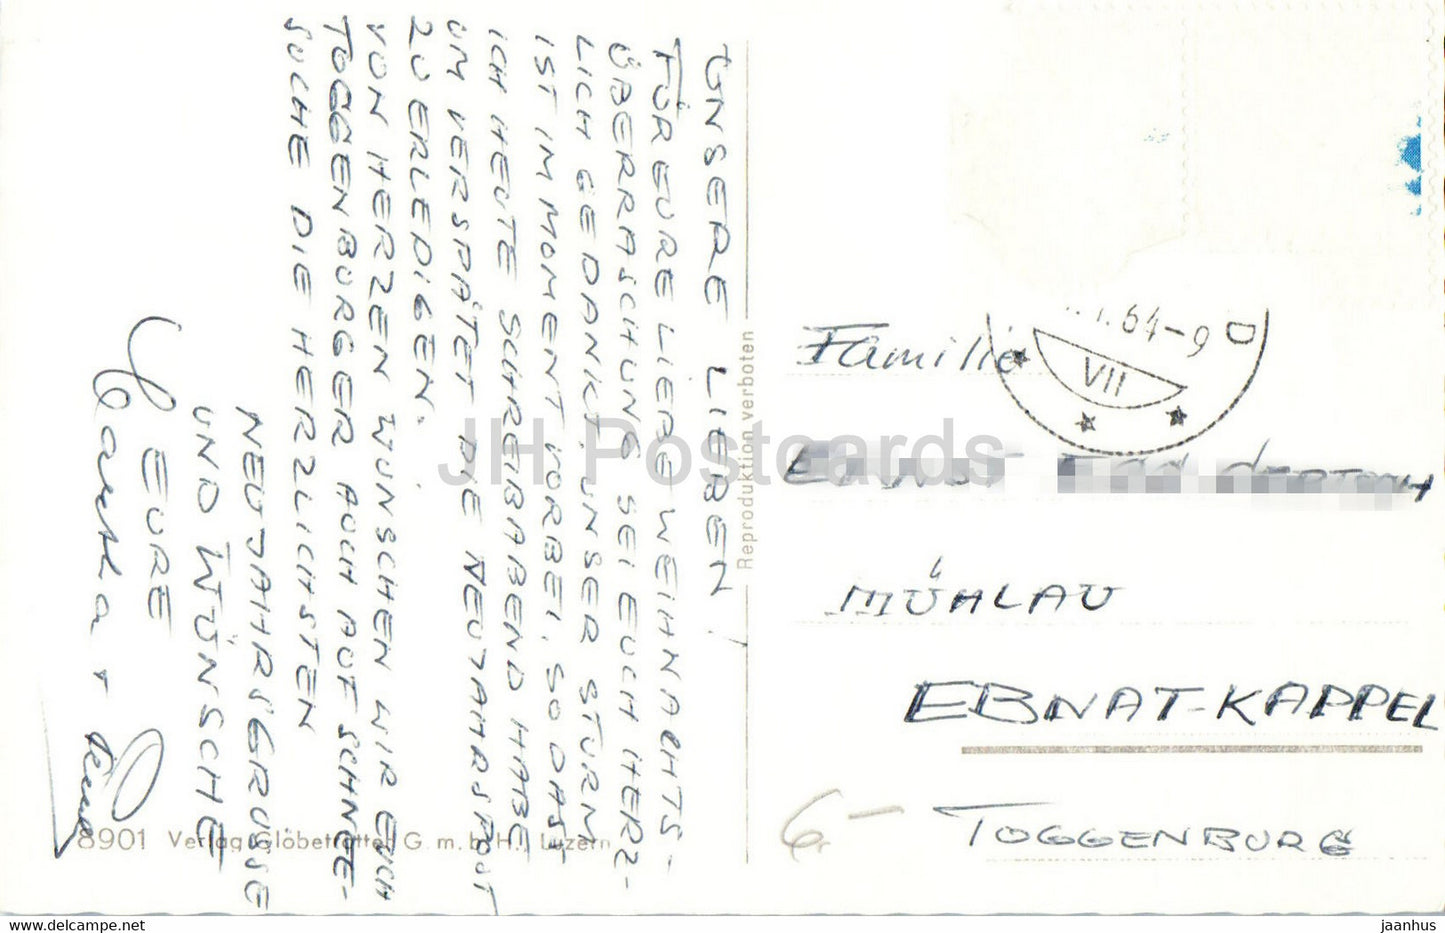 UNSERE LIEBEN!
FÜR EURE LIEBE WEIHNACHTS-
ÜBERRASCHUNG SEI EUCH HERZ-
LICH GEDANKT. UNSER STURM
IST IM MOMENT VORBEI, SO DASS
ICH HEUTE SCHREIBABEND HABE
UM VERSPÄTET DIE NEUJAHRSPOST
ZU ERLEDIGEN.
VON HERZEN WÜNSCHEN WIR EUCH
TOGGENBURGER AUCH AUF SCHNEE-
SUCHE DIE HERZLICHSTEN
NEUJAHRSGRÜSSE
UND WÜNSCHE
EURE
Martha +
8901 Verlag Globetrotter G. m. b. H., Luzern
Reproduktion verboten
64-9
VII
D
Familie
MÜHLAU
EBNAT-KAPPEL
TOGGENBURG
6.-
JH Postcards
www.delcampe.net
jaanhus